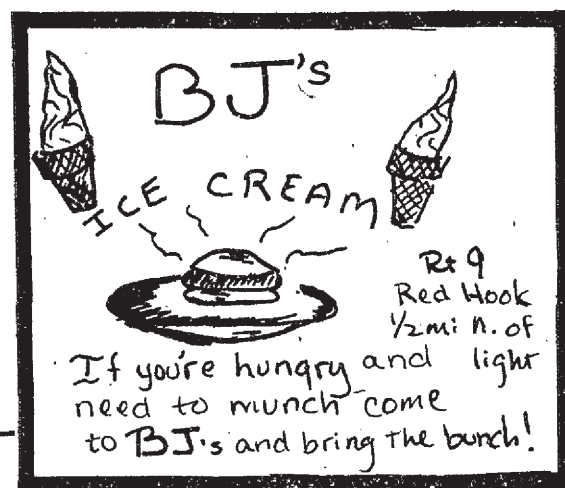 BJ's
ICE CREAM
Rt 9
Red Hook
1/2 mi n. of
light
If you're hungry and
need to munch come
to BJ's and bring the bunch!